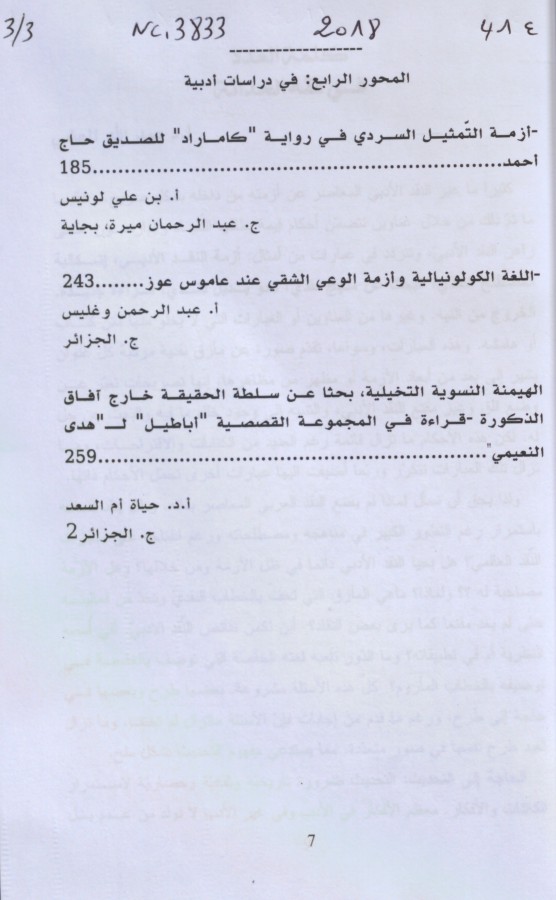 3/3 Nc.3833 2018 ٤١٨
المحور الرابع: في دراسات أدبية
-أزمة التّمثيل السردي في رواية "كاماراد" للصديق حاج
أحمد.......................................................185
أ. بن علي لونيس
ج. عبد الرحمان ميرة، بجاية
-اللغة الكولونيالية وأزمة الوعي الشقي عند عاموس عوز........243
أ. عبد الرحمن وغليس
ج. الجزائر
الهيمنة النسوية التخيلية، بحثا عن سلطة الحقيقة خارج آفاق
الذكورة -قراءة في المجموعة القصصية "اباطيل" لـ"هدى
النعيمي.......................................................259
أ.د. حياة أم السعد
ج. الجزائر2
7